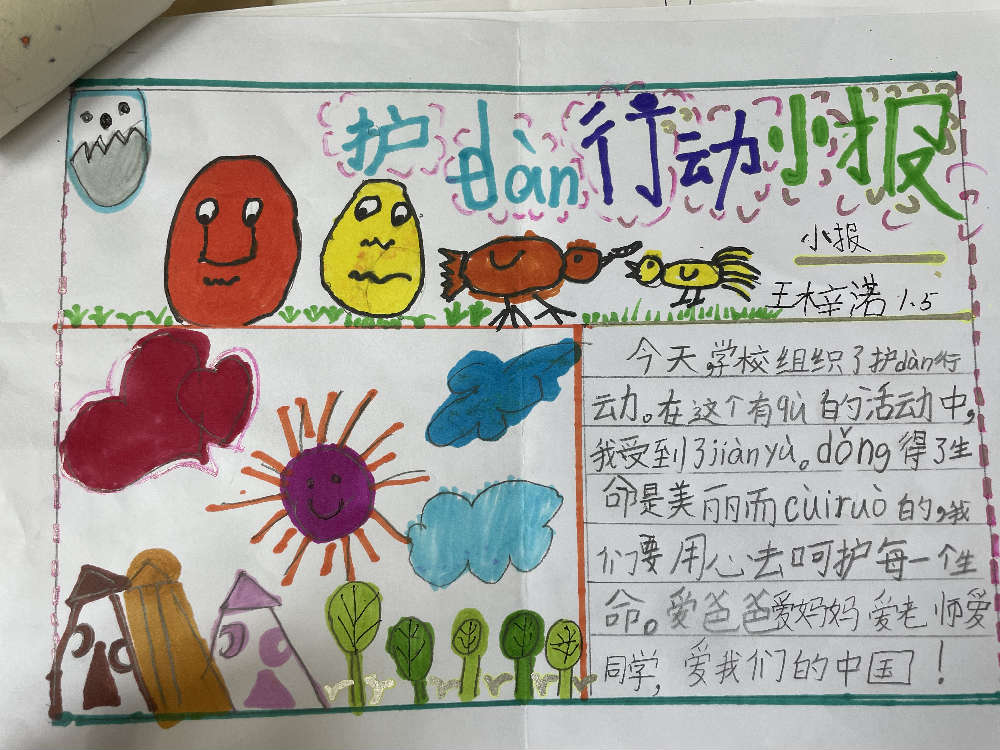 护dàn行动小报
小报
王梓诺 1.5
今天学校组织了护dàn行
动。在这个有qù的活动中,
我受到了jiànyù。dǒng得了生
命是美丽而cuìruò的,我
们要用心去呵护每一个生
命。爱爸爸爱妈妈爱老师爱
同学,爱我们的中国!